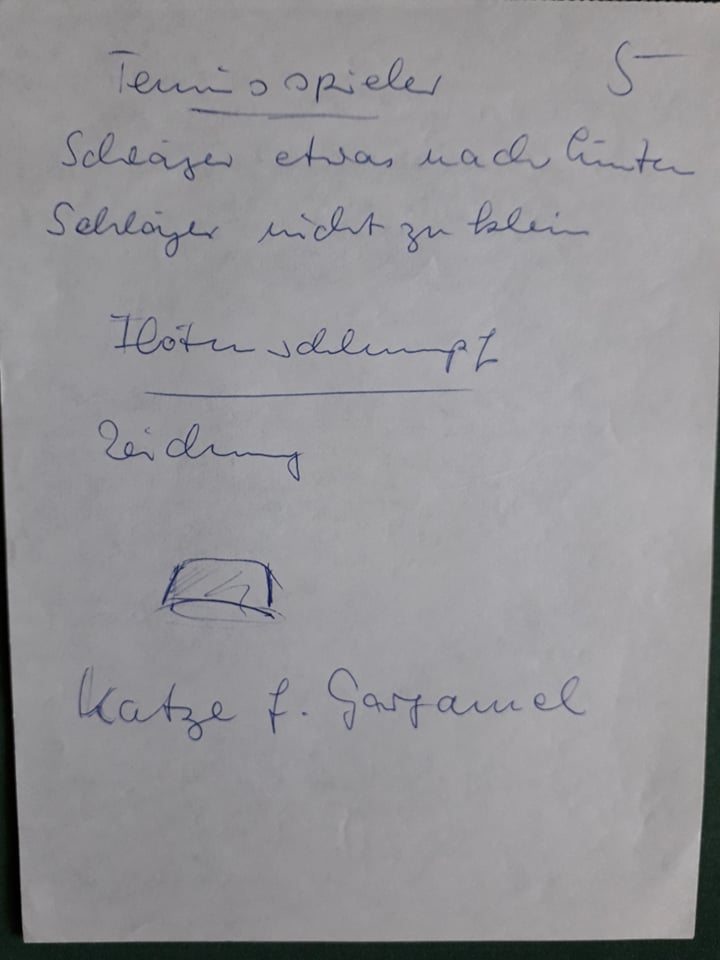 Tennisspieler 5
Schläger etwas nach hinten
Schläger nicht zu klein
Flötenschlumpf
Zeichnung
Katze f. Gargamel